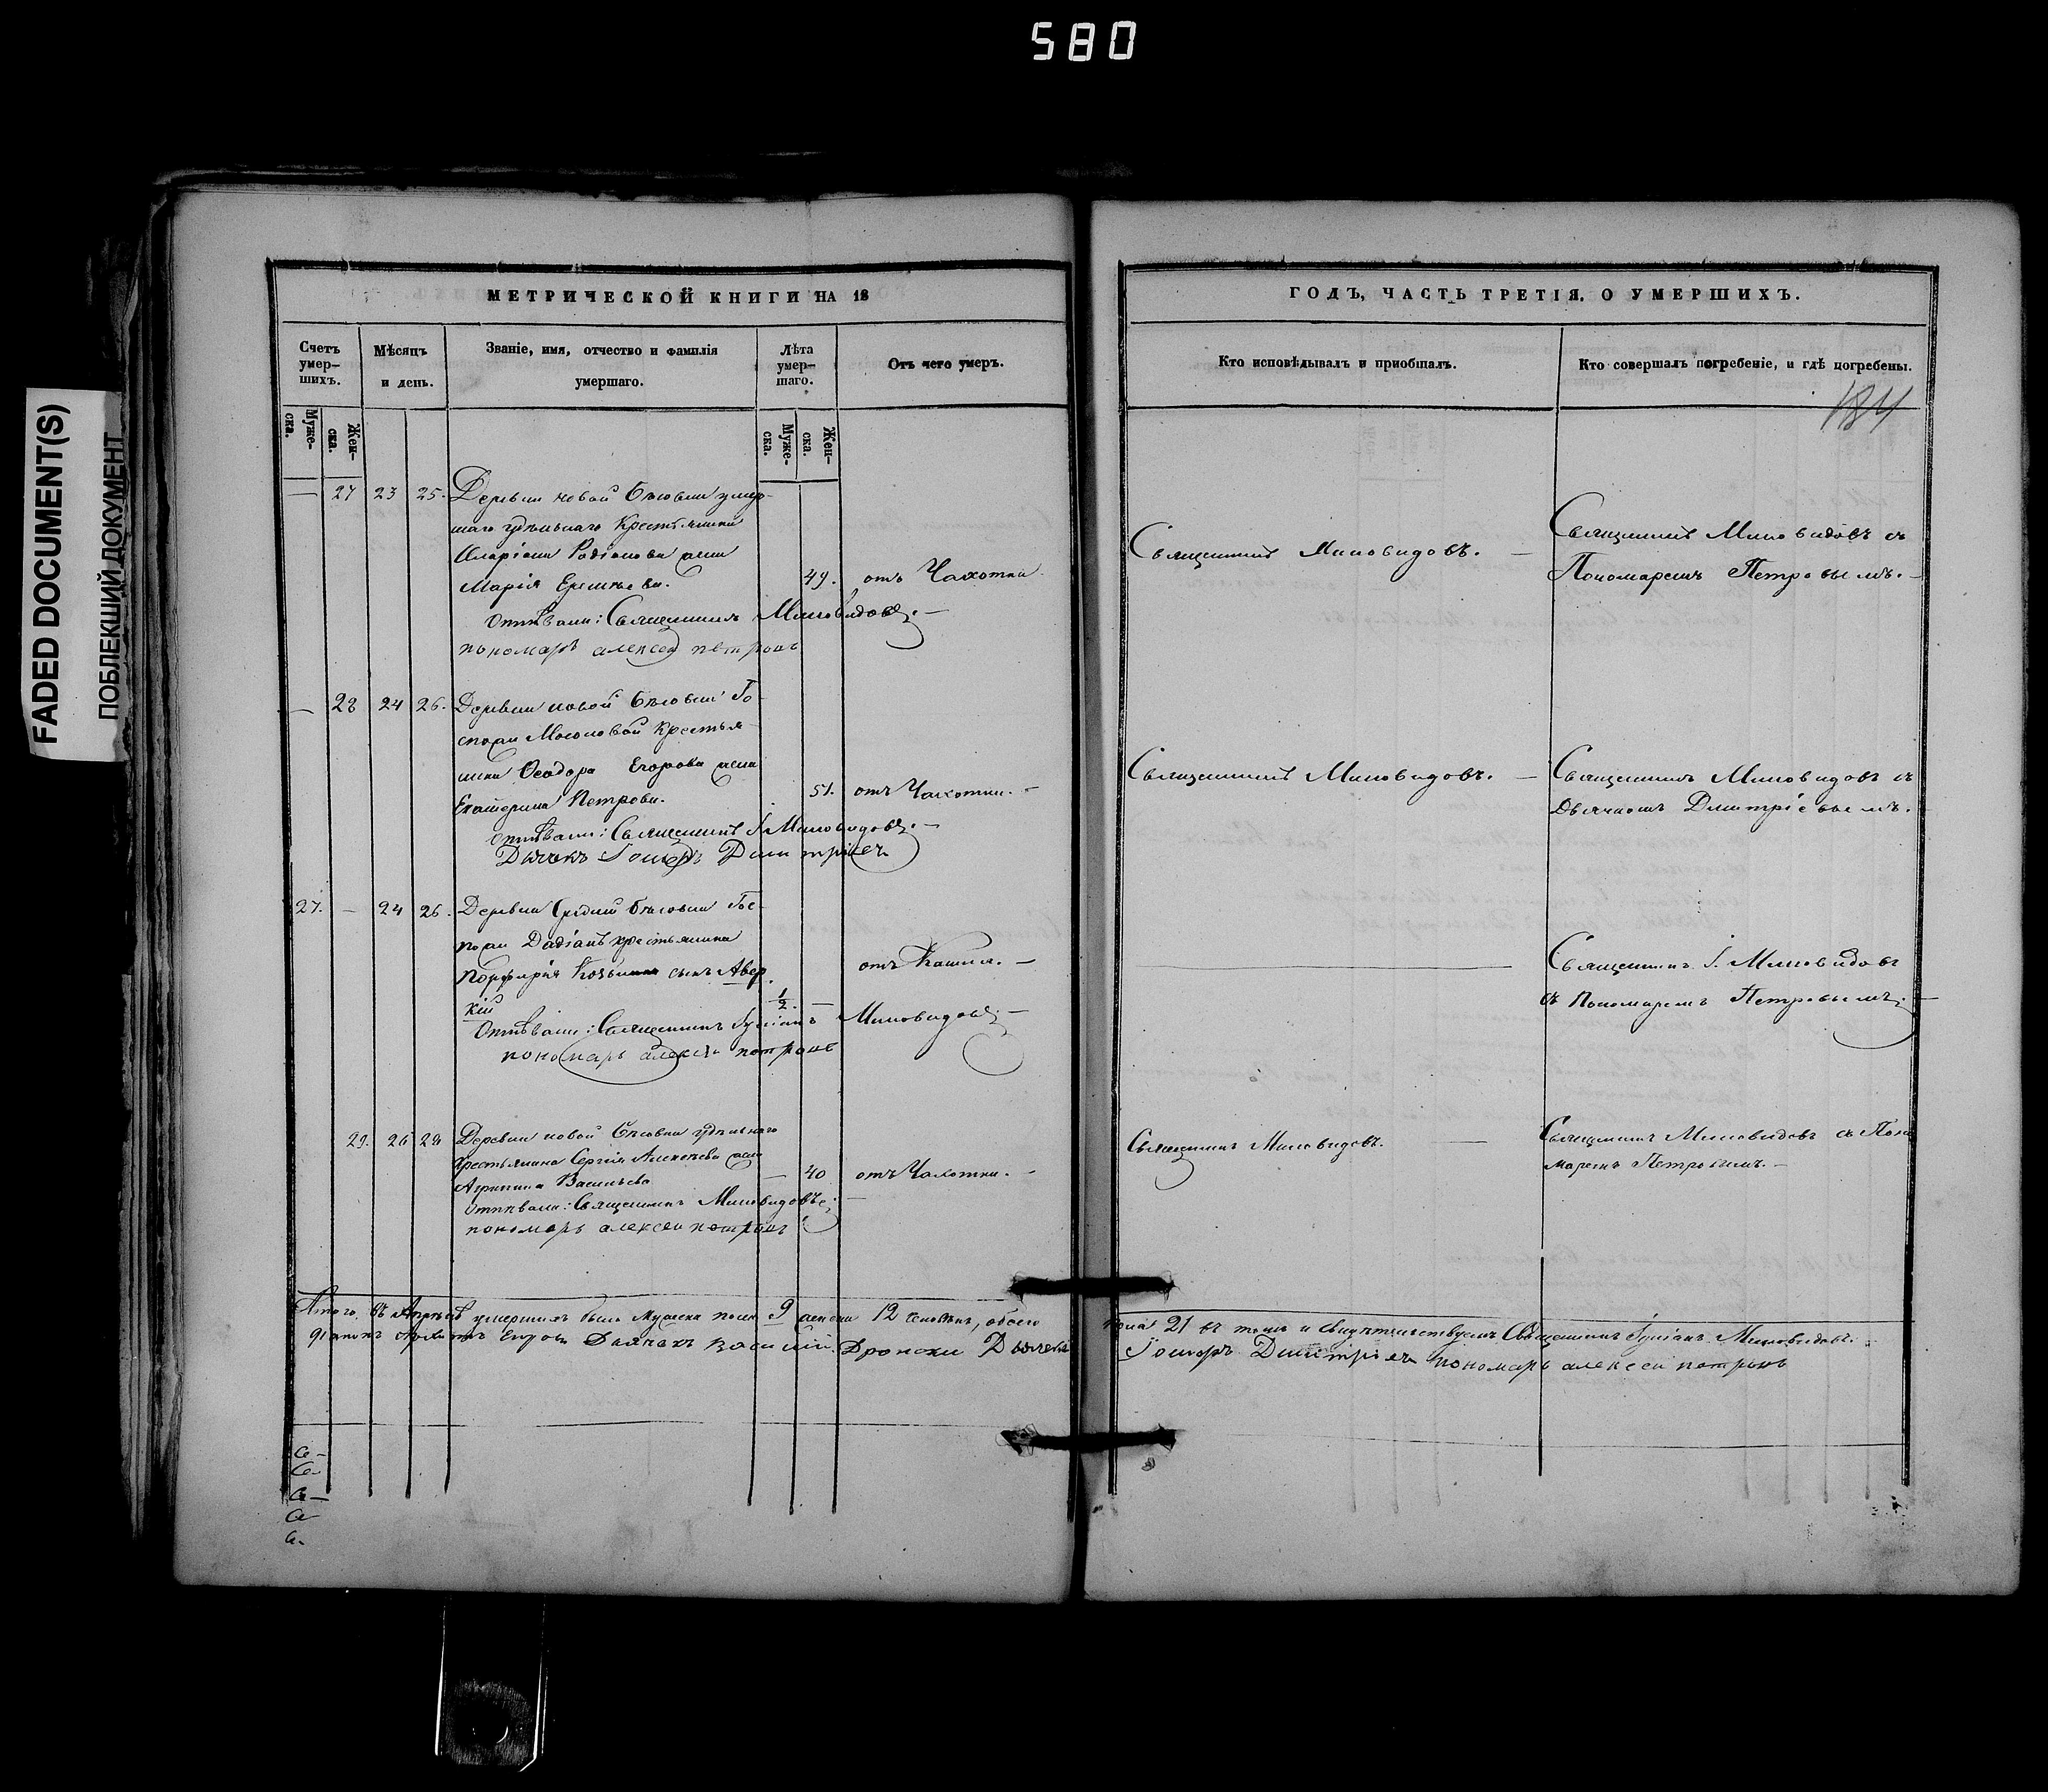 580
FADED DOCUMENT(S)
ПОБЛЕКШИЙ ДОКУМЕНТ
МЕТРИЧЕСКОЙ КНИГИ НА 18
Счетъ умер-
шихъ.
Мѣсяцъ
и день.
Званіе, имя, отчество и фамилія
умершаго.
Лѣта
умер-
шаго.
Отъ чего умеръ.
Муже-
ска.
Жен-
ска.
Муже-
ска.
Жен-
ска.
— 27 23 25. Деревни новой Бѣсовки умер-
шаго удѣльнаго Крестьянина
Иларіона Родіонова жена
Марія 49. отъ Чахотки
Отпѣвали: Священникъ Миловидовъ. —
пономарь алексей петровъ
— 28 24 26. Деревни новой Бѣсовки Го-
спожи Мосоловой Крестья-
нина Ѳеодора Егорова жена
Екатерина Петрова. 51. отъ Чахотки. —
Отпѣвали: Священникъ І. Миловидовъ. —
Дьячекъ Димитріевъ
27. — 24 26. Деревни Средней Бѣсовки Гос-
пожи Дадіанъ крестьянина
Порфирія сынъ Авер-
кій ½. — отъ Кашля. —
Отпѣвали: Священникъ Іуліанъ Миловидовъ. —
пономарь алексей петровъ
29. 26 28 Деревни новой Бѣсовки удѣльнаго
крестьянина Сергія Алексѣева жена
Агрипина Васильева — 40 отъ Чахотки. —
Отпѣвали: Священникъ Миловидовъ. —
пономарь алексей петровъ
Итого въ Апрѣлѣ умершихъ было мужеска пола 9 женска 12 человѣкъ, обоего
Дьячекъ Василій Дьячекъ
ГОДЪ, ЧАСТЬ ТРЕТІЯ, О УМЕРШИХЪ.
Кто исповѣдывалъ и пріобщалъ.
Кто совершалъ погребеніе, и гдѣ погребены.
184
Священникъ Миловидовъ. —
Священникъ Миловидовъ съ
Пономаремъ Петровымъ. —
Священникъ Миловидовъ. —
Священникъ Миловидовъ съ
Дьячкомъ Димитріевымъ.
Священникъ І. Миловидовъ
съ Пономаремъ Петровымъ. —
Священникъ Миловидовъ. —
Священникъ Миловидовъ съ Поно
маремъ Петровымъ. —
пола 21 въ томъ и свидѣтельствуемъ Священникъ Іуліанъ Миловидовъ.
Димитріевъ пономарь алексей петровъ